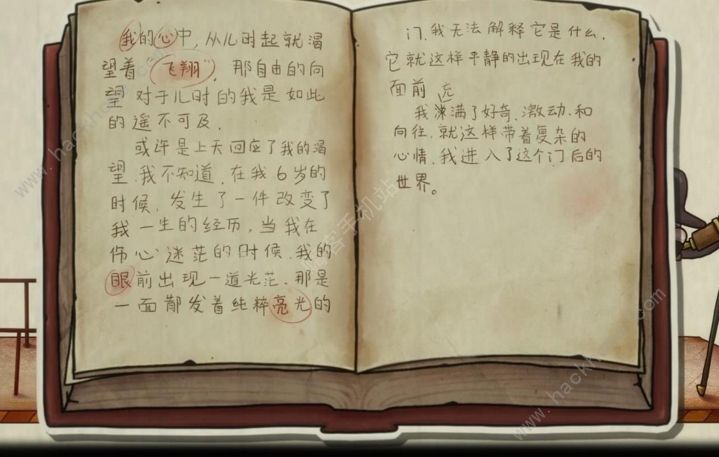 我的心中,从儿时起就渴
望着“飞翔”,那自由的向
望 对于儿时的我是如此
的遥不可及.
或许是上天回应了我的渴
望.我不知道,在我6岁的
时候,发生了一件改变了
我一生的经历,当我在
伤心迷茫的时候,我的
眼前出现一道光茫.那是
一面散发着纯粹亮光的
门.我无法解释它是什么,
它就这样平静的出现在我的
面前
我满了好奇、激动、和
向往.就这样带着复杂的
心情,我进入了这个门后的
世界。
客手机站
www.hackh